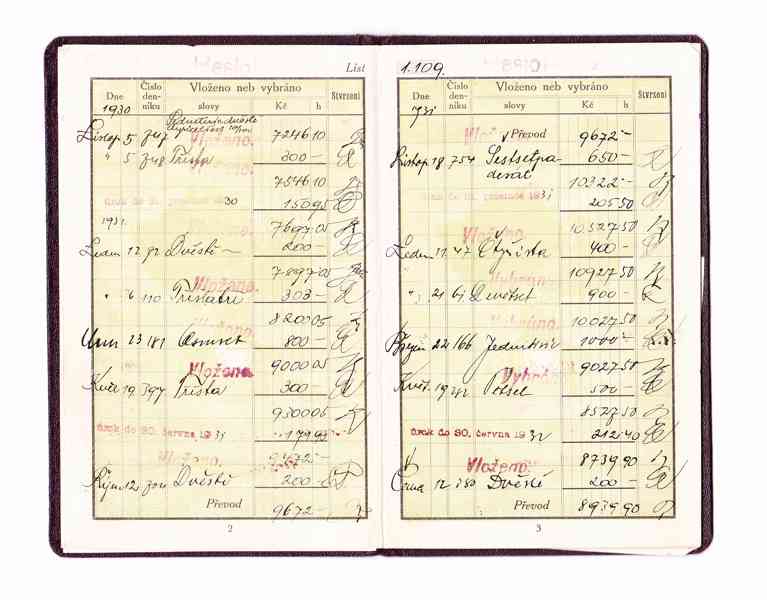 List
Dne
Číslo
den-
níku
Vloženo neb vybráno
slovy
Kč
h
Stvrzení
1930
Listop. 5 747 Vloženo. 7246 10
" 5 748 Třista 300 —
7546 10
úrok do 31. prosince 1930 150 95
1931. 7697 05
Leden 12 92 Dvěstě — 200 —
7897 05
Vloženo.
" 6 110 Třistatři 303 —
Vloženo. 8200 05
Únor 23 181 Osmset 800 —
Vloženo. 9000 05
Květ. 19 397 Třista 300 —
9300 05
úrok do 30. června 1931 179 95
Vloženo.
Říjen 12 Dvěstě 200 —
Převod 9672 —
2
1.109.
Dne
Číslo
den-
níku
Vloženo neb vybráno
slovy
Kč
h
Stvrzení
Převod 9672 —
Listop. 18 754 Šestsetpa- 650 —
desát 10322 —
úrok do 31. prosince 1931 205 50
Vloženo. 10527 50
Leden 11 47 Čtyřista 400 —
Vybráno. 10927 50
" 21 61 Devětset 900 —
Vybráno. 10027 50
Březen 22 166 Jedentisíc 1000 —
9027 50
Vybráno.
Květ. 19 Pětset 500 —
8527 50
úrok do 30. června 1932 212 40
Vloženo. 8739 90
12 Dvěstě 200 —
Převod 8939 90
3